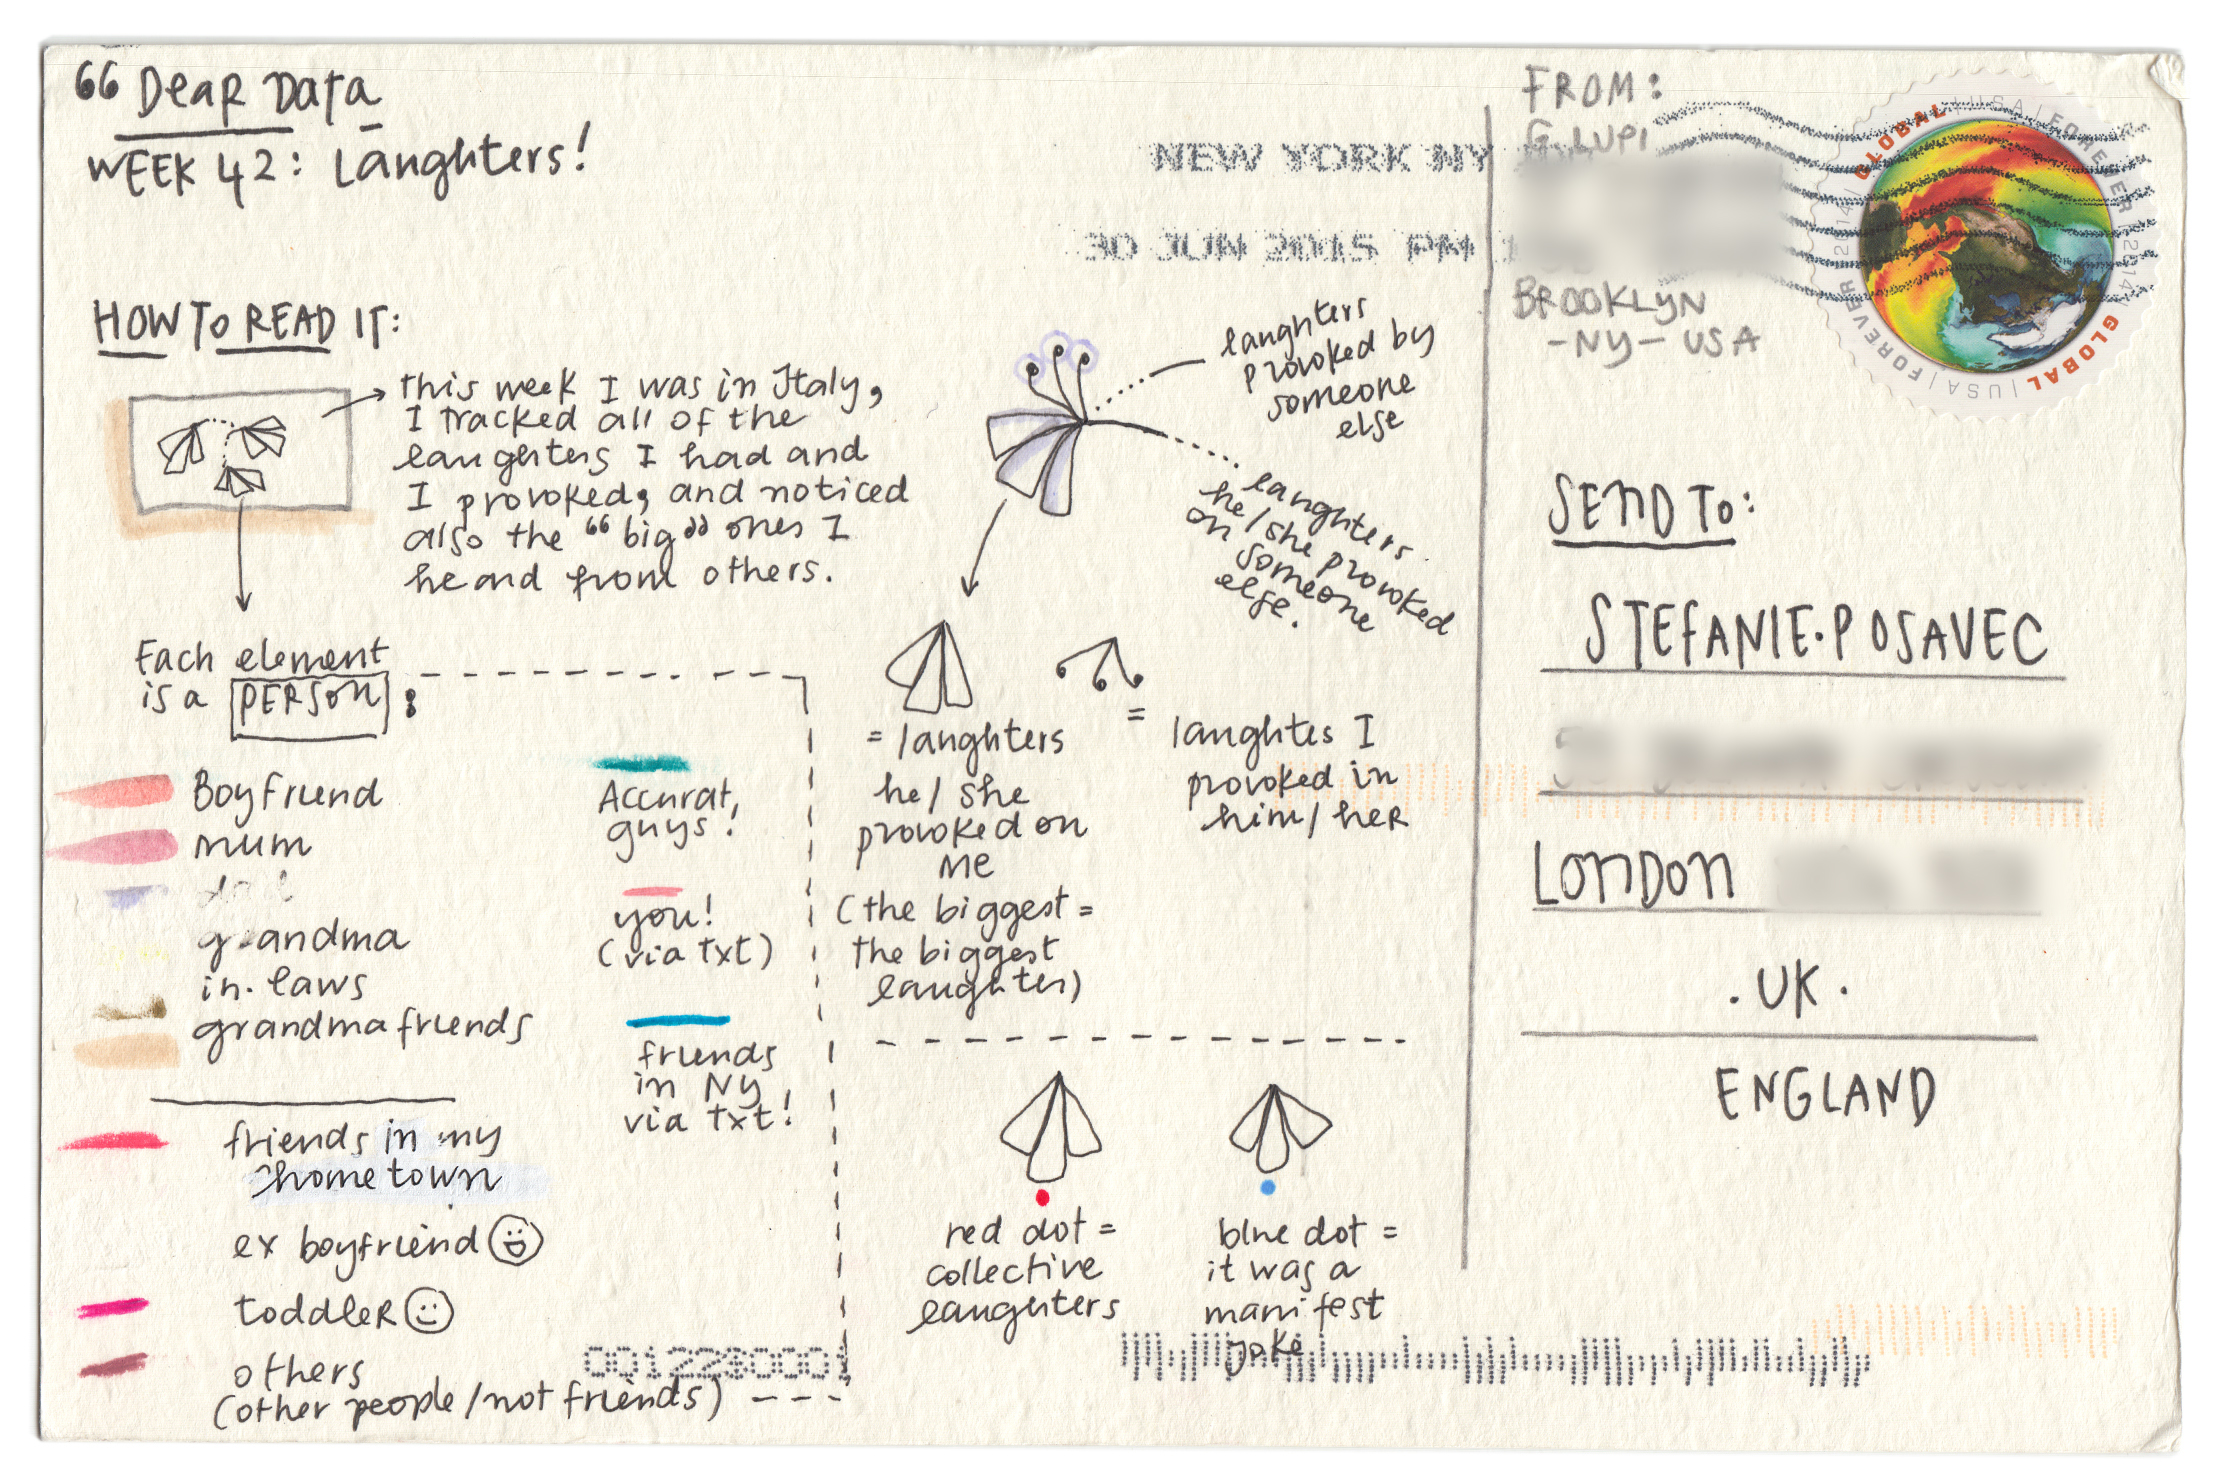 “Dear Data
WEEK 42: Laughters!
HOW TO READ IT:
this week I was in Italy,
I tracked all of the
laughters I had and
I provoked, and noticed
also the “big” ones I
heard from others.
Each element
is a PERSON:
Boyfriend
mum
grandma
in-laws
grandma friends
friends in my
hometown
ex boyfriend
toddler
others
(other people/not friends)
Accurat,
guys!
you!
(via txt)
friends
in NY
via txt!
laughters
provoked by
someone
else
laughters
he/she provoked
on someone
else.
= laughters
he/she
provoked on
me
(the biggest =
the biggest
laughter)
= laughtes I
provoked in
him/her
red dot =
collective
laughters
blue dot =
it was a
manifest
joke
NEW YORK NY
30 JUN 2015 PM 1
FROM:
G. LUPI
BROOKLYN
-NY- USA
GLOBAL | USA | FOREVER | 2014 | GLOBAL | USA | FOREVER | 2014
SEND TO:
STEFANIE·POSAVEC
LONDON
.UK.
ENGLAND